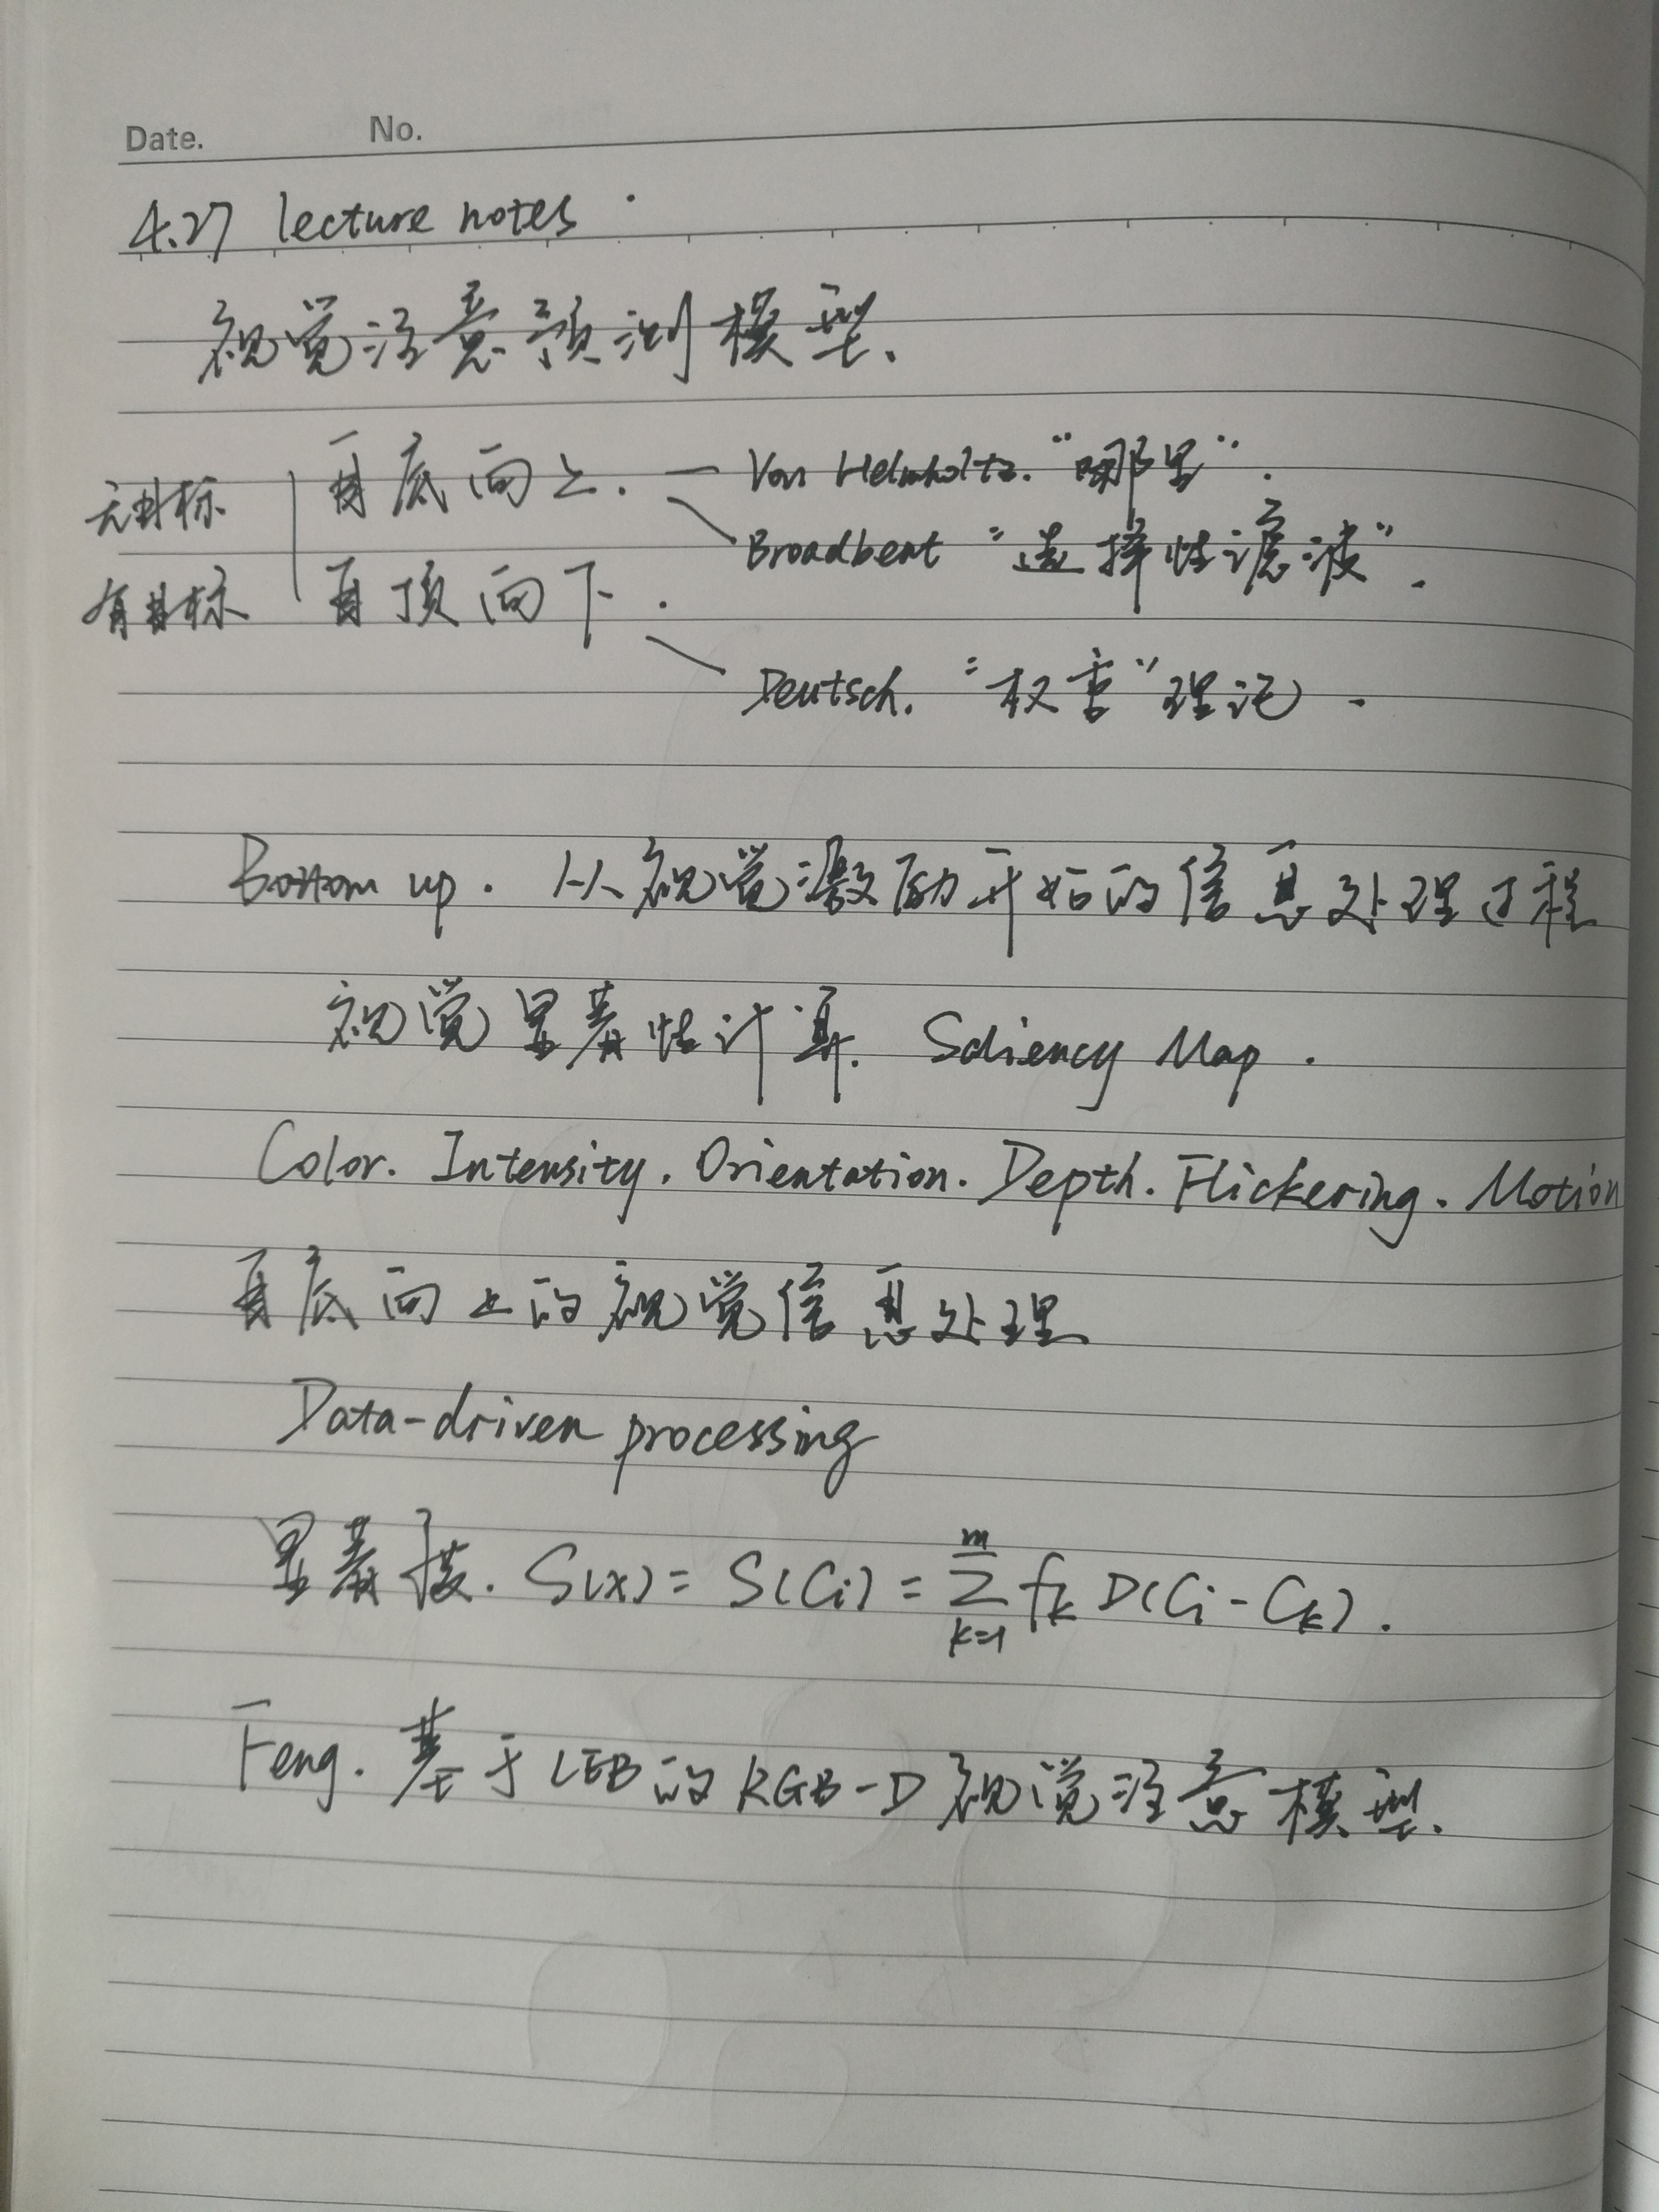 Date. No.
4.27 lecture notes
视觉注意预测模型.
无目标 自底向上. — Von Helmholtz. "哪里".
Broadbent "选择性滤波".
有目标 自顶向下.
Deutsch. "权重"理论.
Bottom up. 从视觉激励开始的信息处理过程
视觉显著性计算. Saliency Map.
Color. Intensity. Orientation. Depth. Flickering. Motion
自底向上的视觉信息处理
Data-driven processing
显著度. S(x) = S(Ci) = ∑ᵐₖ₌₁ fk D(Ci - Ck).
Feng. 基于LEB的RGB-D视觉注意模型.